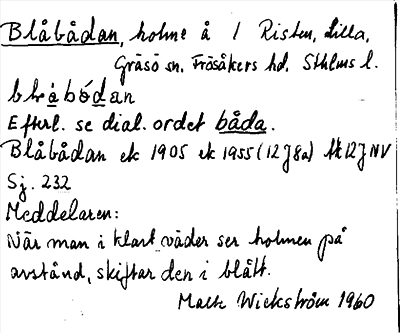 Blåbådan, holme å / Risten, Lilla,
Gräsö sn. Frösåkers hd. Sthlms l.
blåbódan
Efterl. se dial. ordet båda.
Blåbådan ek 1905 ek 1955 (12J8a) tk12JNV
Sj. 232
Meddelaren:
När man i klart väder ser holmen på
avstånd, skiftar den i blått.
Wickström 1960